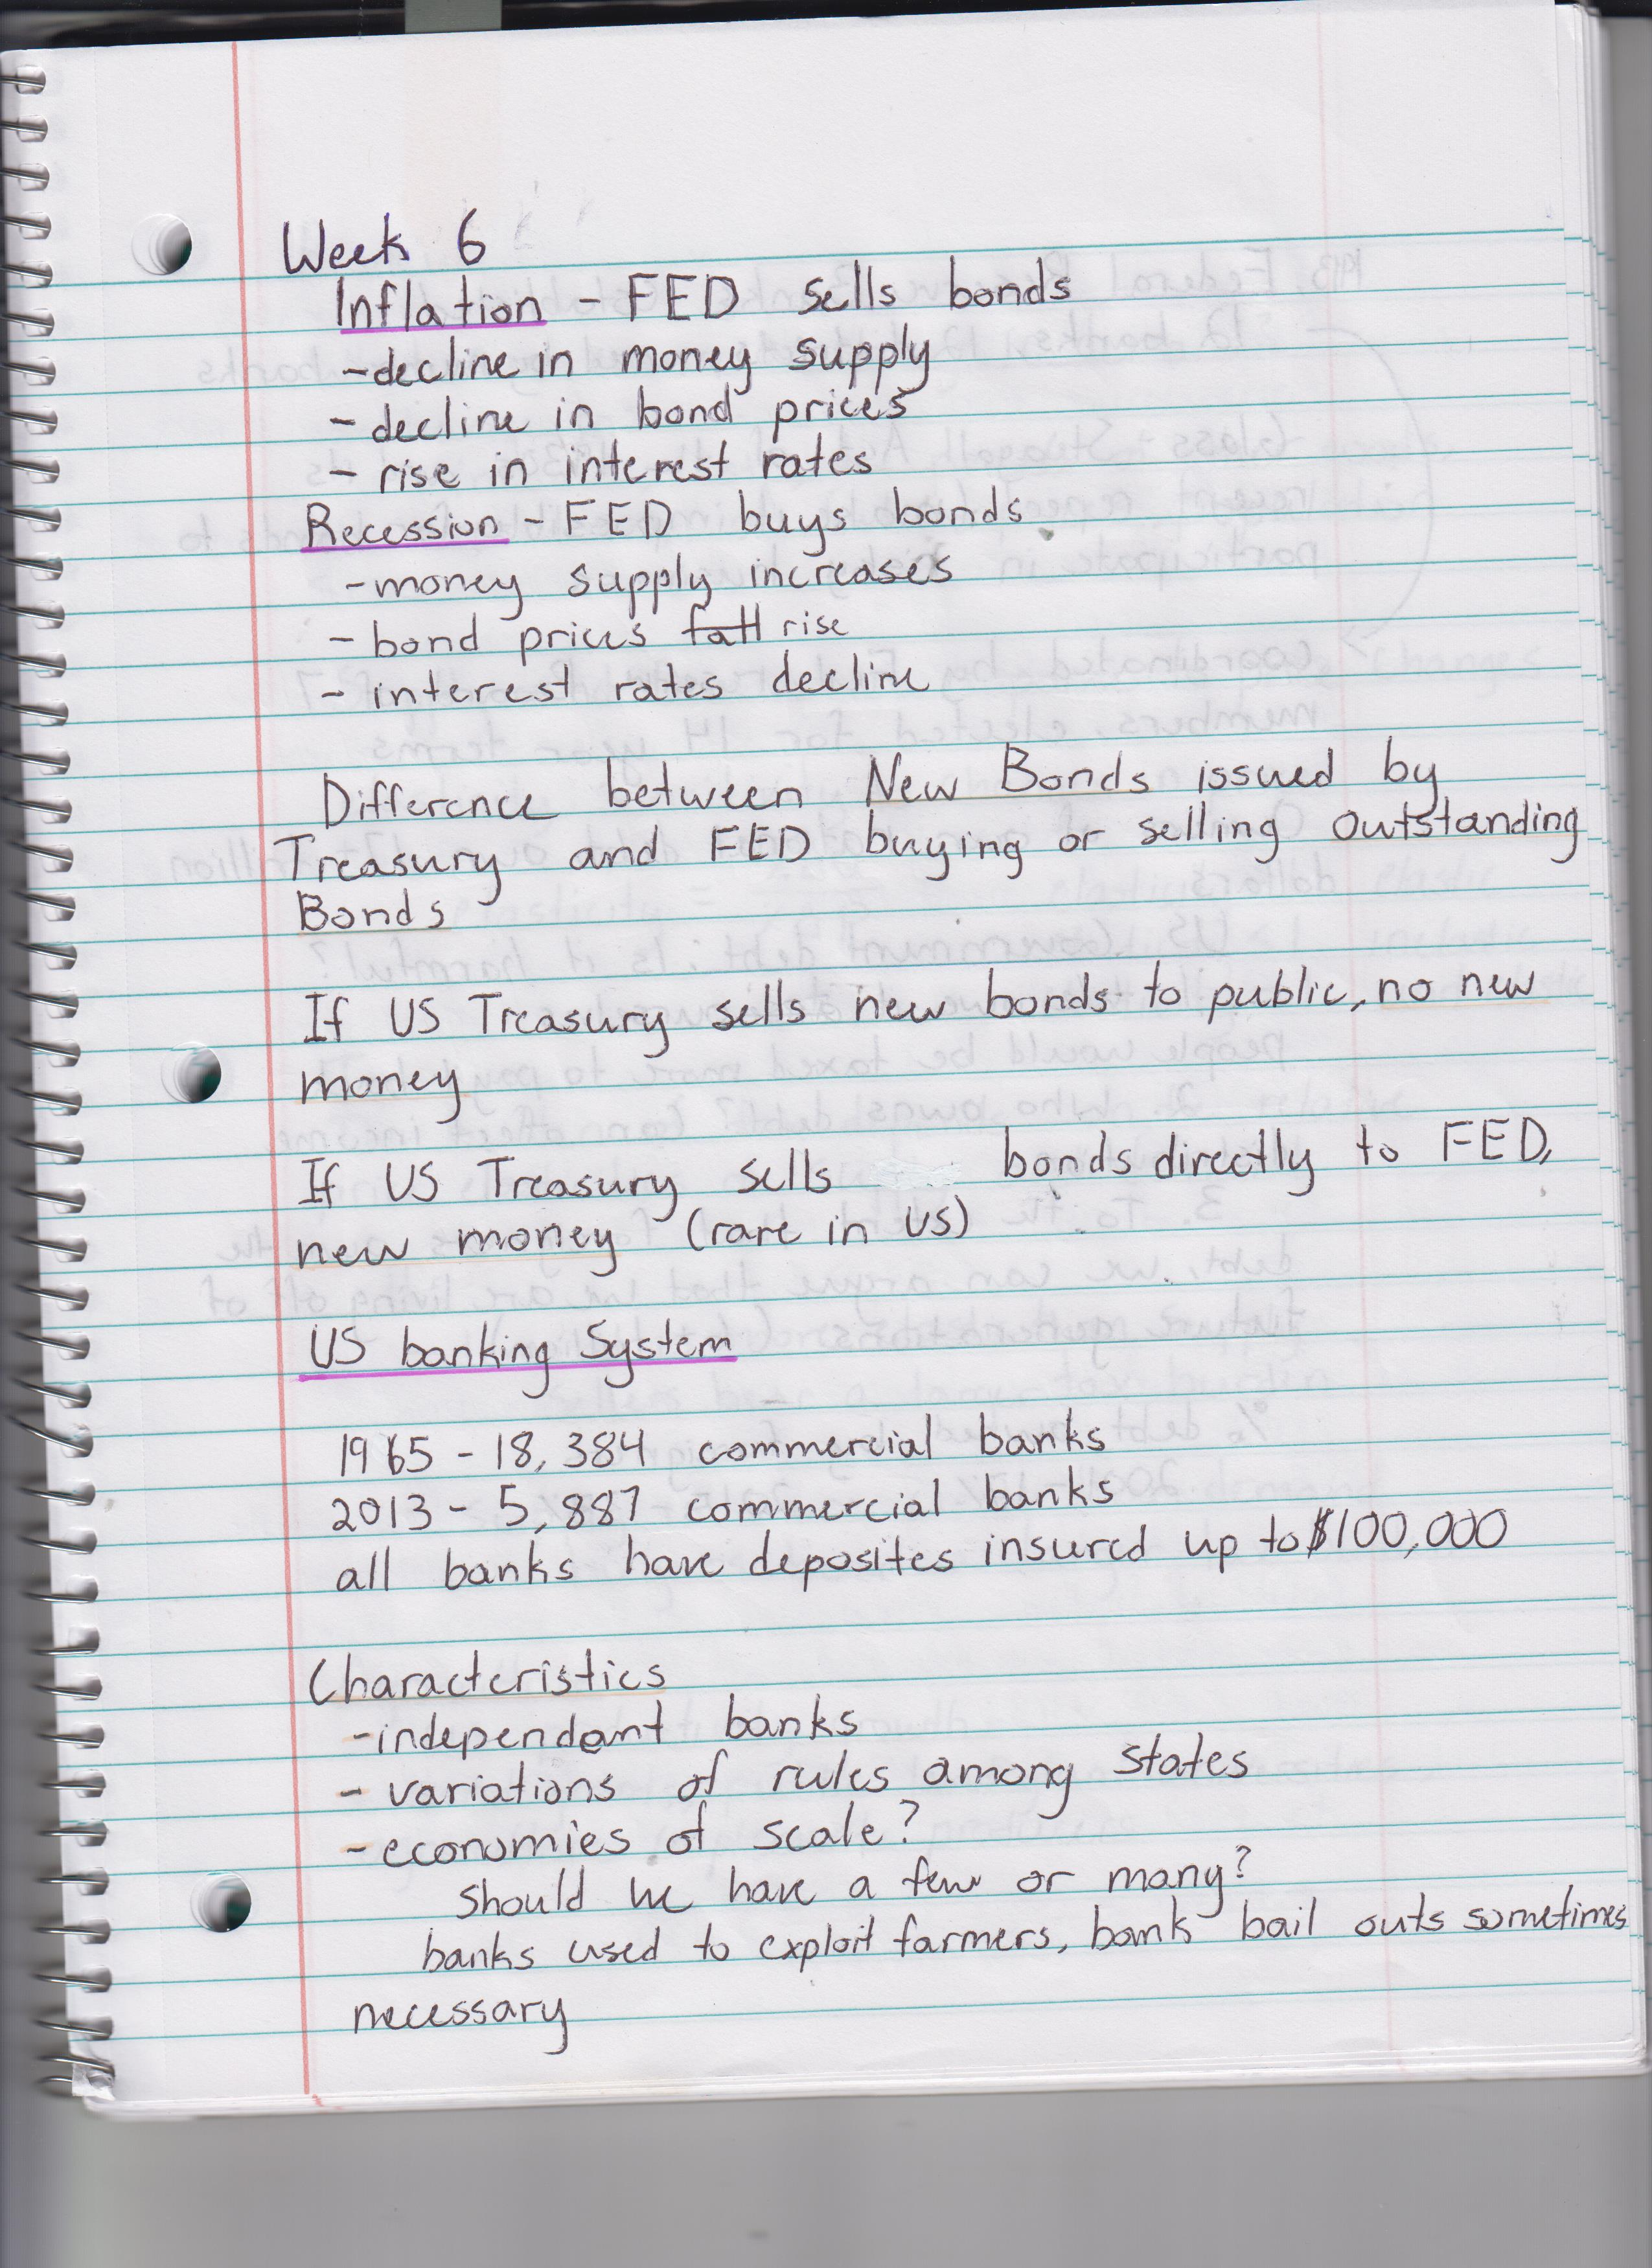 Week 6
Inflation - FED sells bonds
- decline in money supply
- decline in bond prices
- rise in interest rates
Recession - FED buys bonds
- money supply increases
- bond prices fall rise
- interest rates decline
Difference between New Bonds issued by
Treasury and FED buying or selling Outstanding
Bonds
If US Treasury sells new bonds to public, no new
money
If US Treasury sells bonds directly to FED,
new money (rare in US)
US banking System
1965 - 18,384 commercial banks
2013 - 5,887 commercial banks
all banks have deposites insured up to $100,000
Characteristics
- independant banks
- variations of rules among States
- economies of scale?
Should we have a few or many?
banks used to exploit farmers, bank bail outs sometimes
necessary